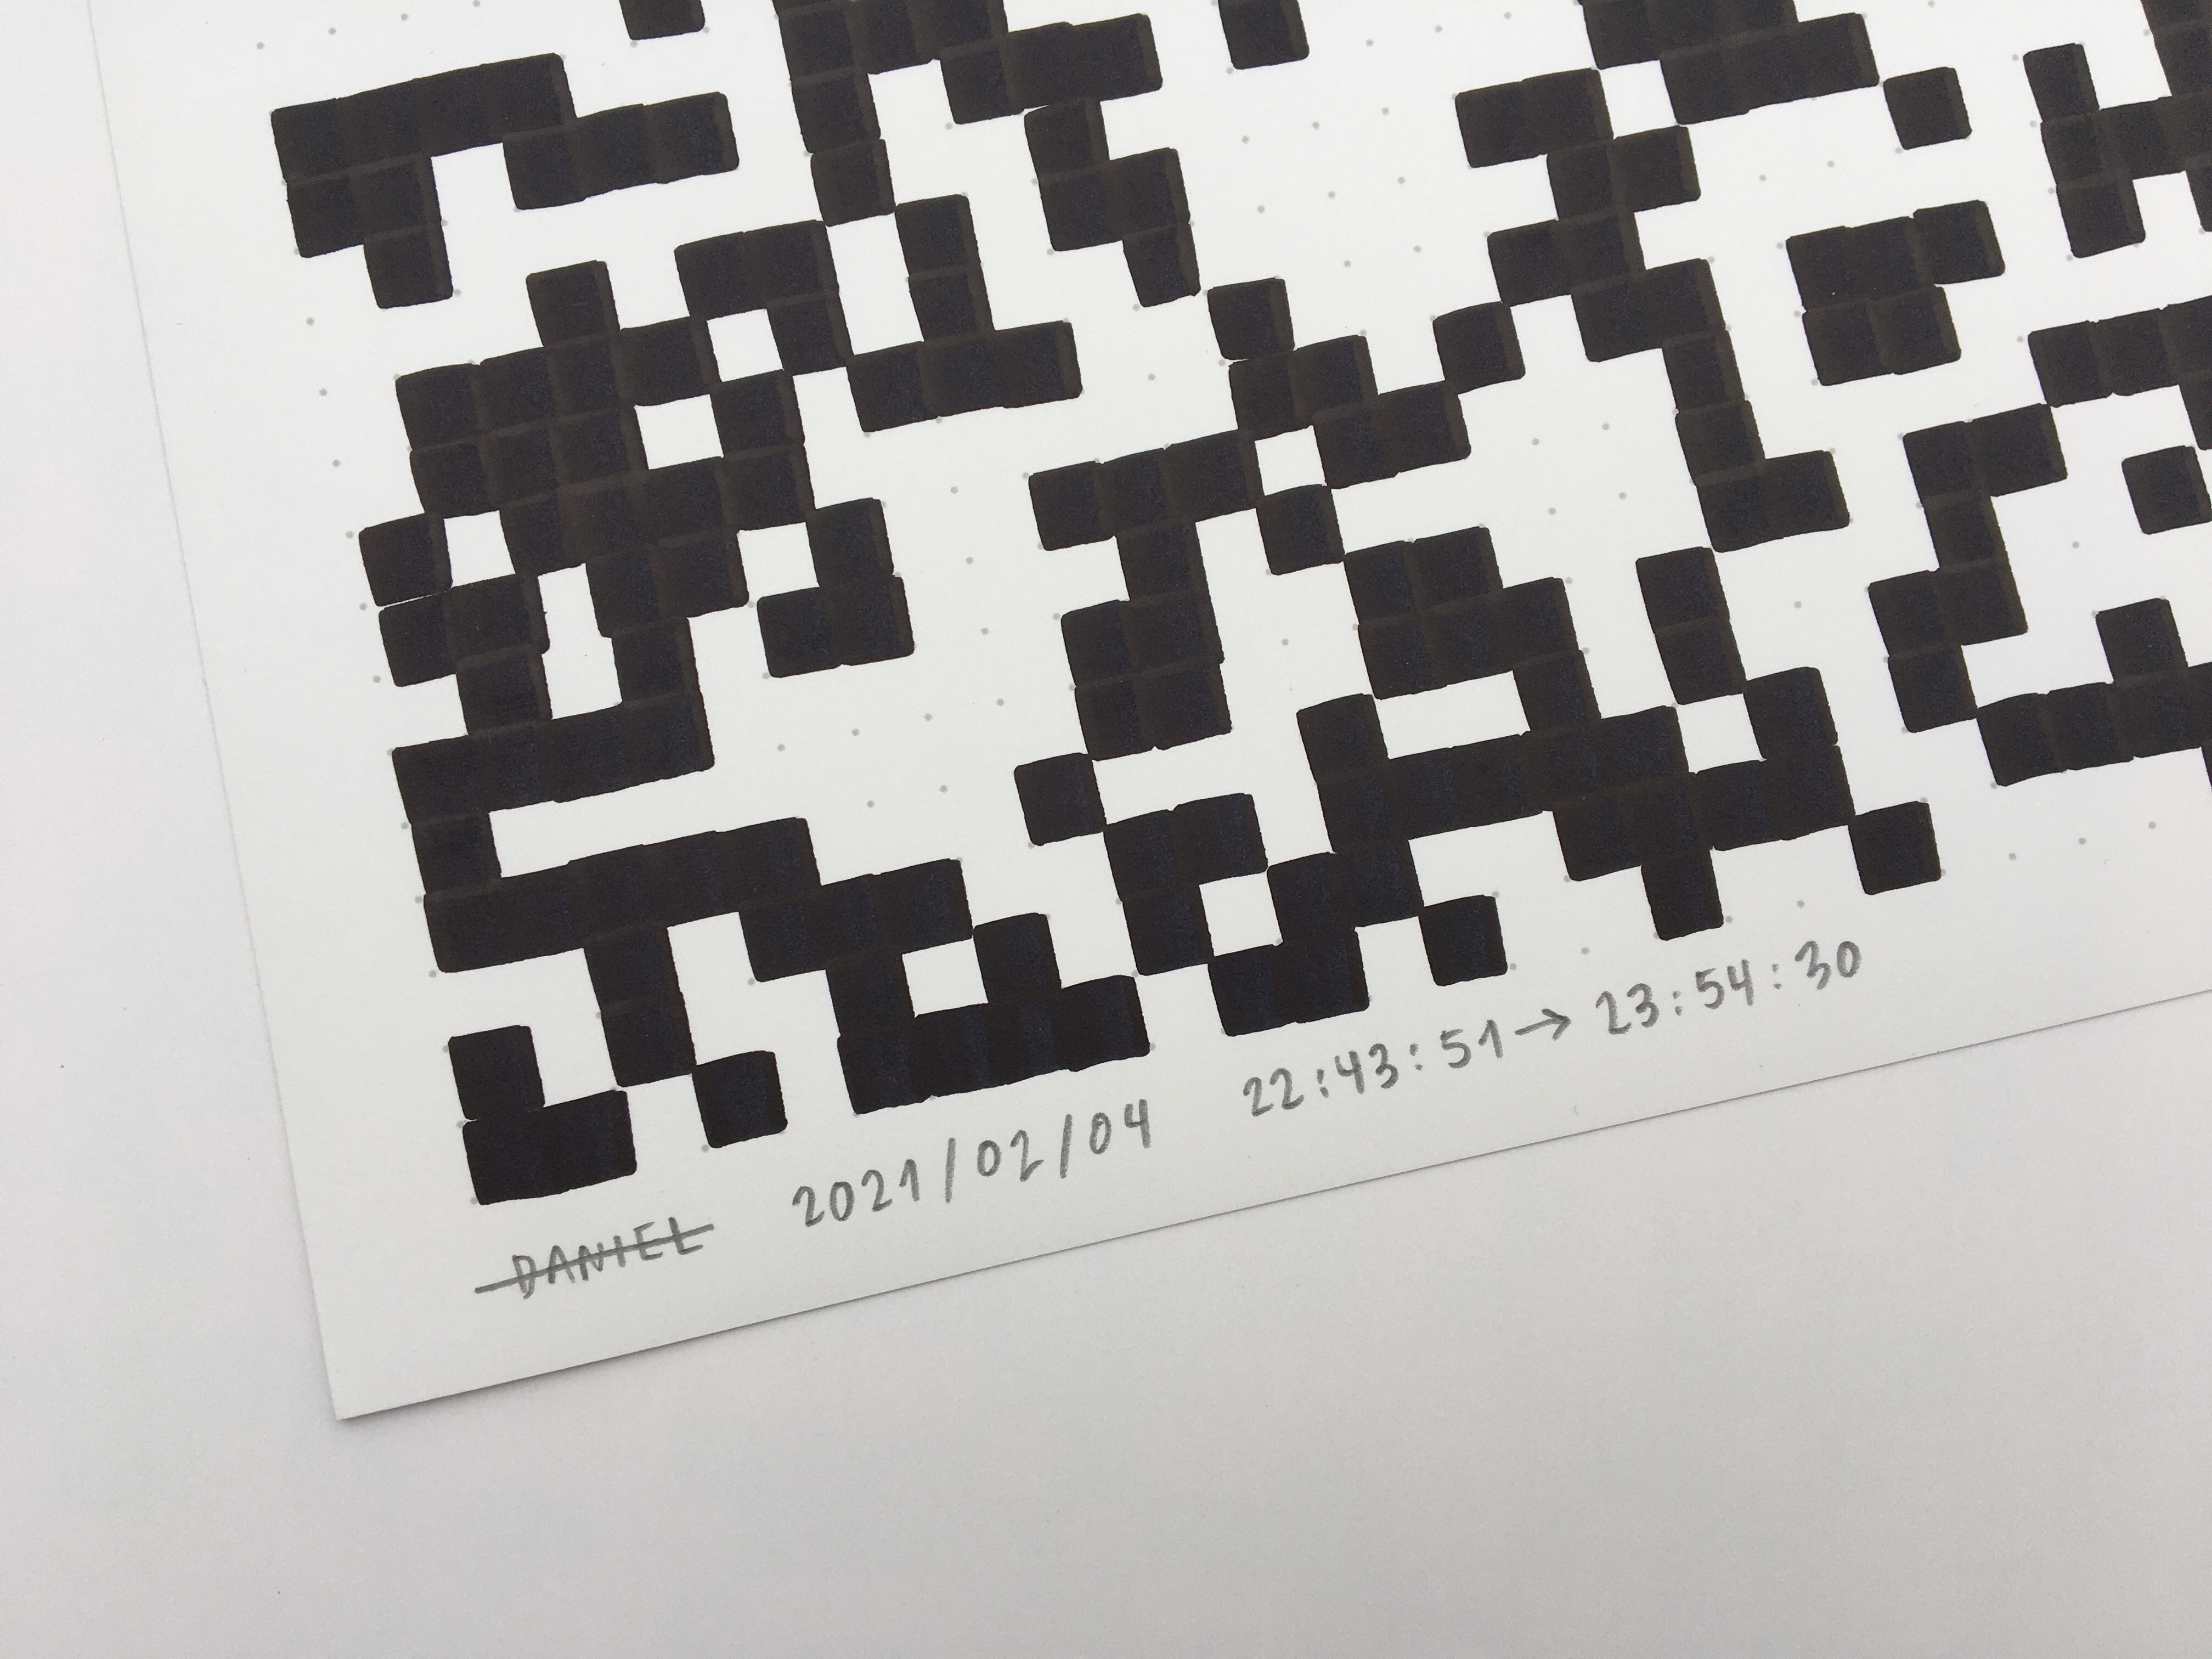 DANIEL 2021/02/04 22:43:51→23:54:30